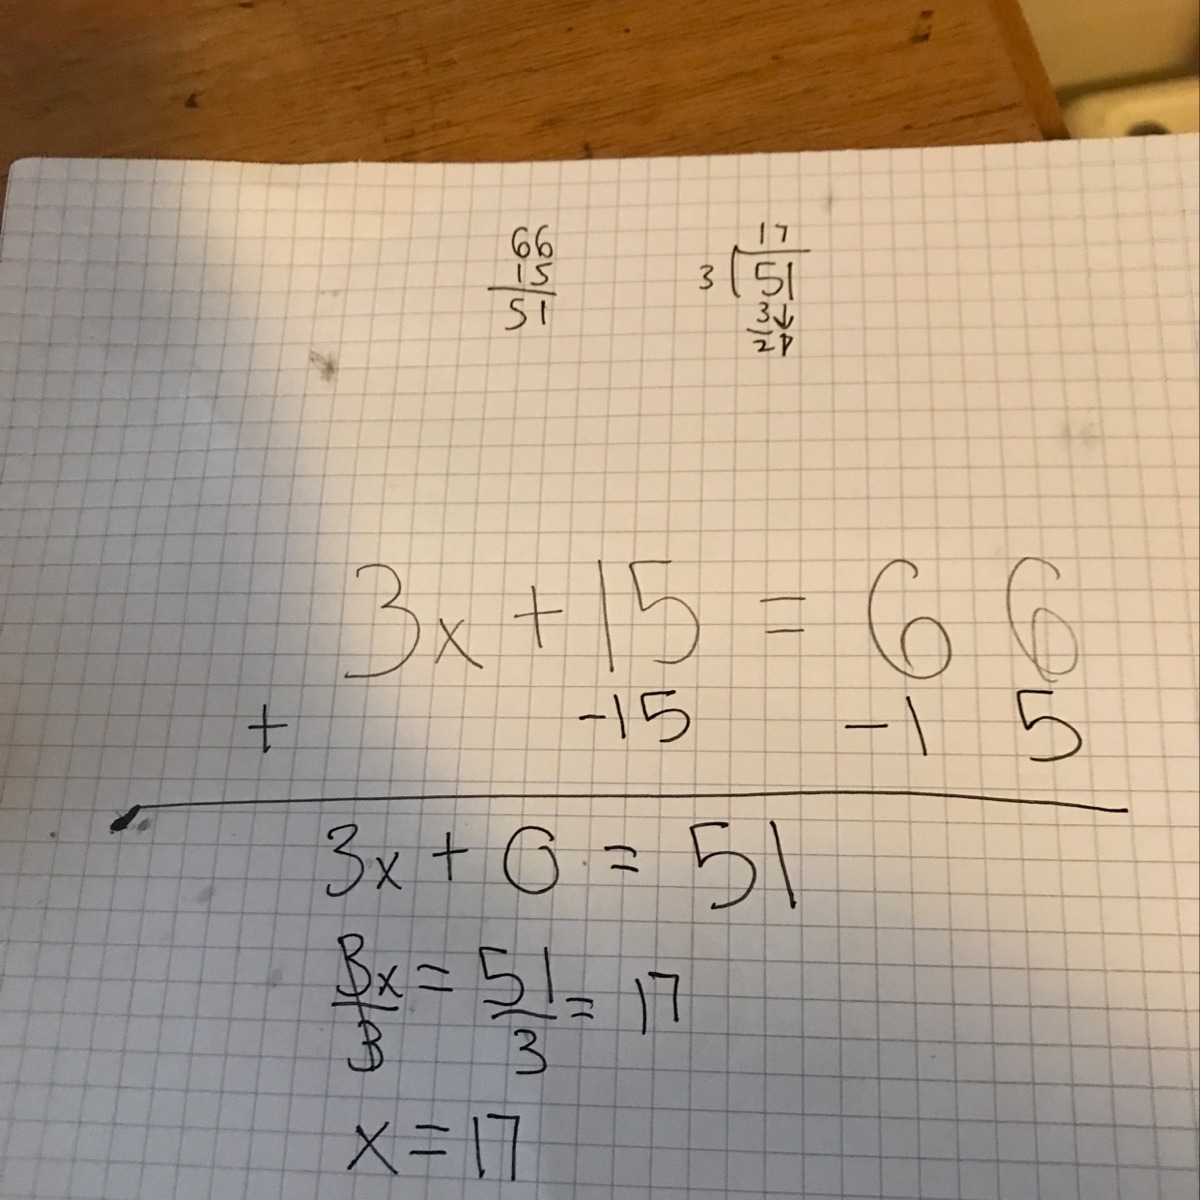 66
15
51
17
3 51
3↓
21
3x + 15 = 66
+ -15 -15
3x + 0 = 51
3x/3 = 51/3 = 17
x = 17